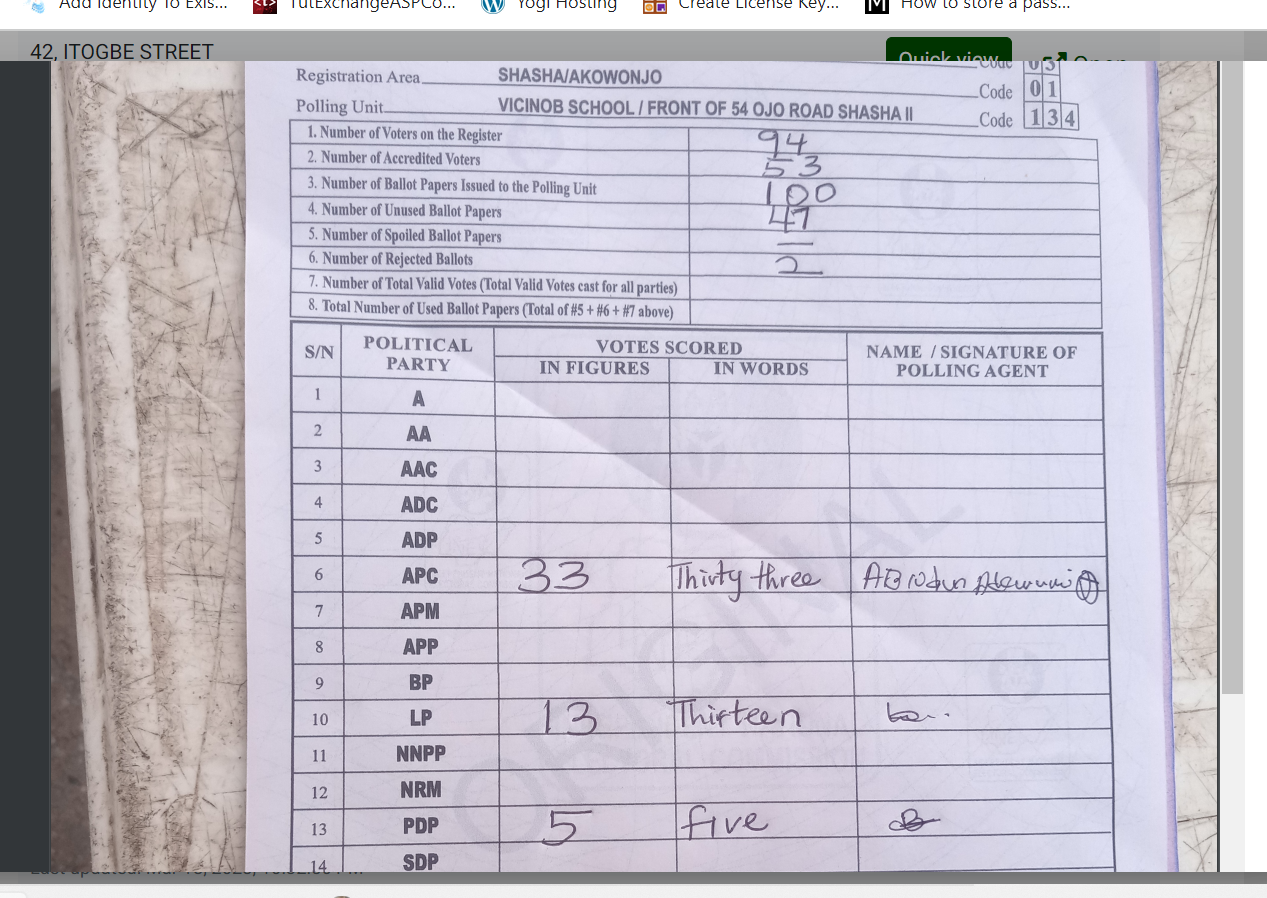 Add Identity To Exis... TutExchangeASPCo... Yogi Hosting Create License Key... How to store a pass...
42, ITOGBE STREET
Quick view Open
Code 03
Registration Area SHASHA/AKOWONJO Code 01
Polling Unit VICINOB SCHOOL / FRONT OF 54 OJO ROAD SHASHA II Code 134
1. Number of Voters on the Register 94
2. Number of Accredited Voters 53
3. Number of Ballot Papers Issued to the Polling Unit 100
4. Number of Unused Ballot Papers 47
5. Number of Spoiled Ballot Papers —
6. Number of Rejected Ballots 2
7. Number of Total Valid Votes (Total Valid Votes cast for all parties)
8. Total Number of Used Ballot Papers (Total of #5 + #6 + #7 above)
S/N POLITICAL PARTY VOTES SCORED NAME / SIGNATURE OF POLLING AGENT
IN FIGURES IN WORDS
1 A
2 AA
3 AAC
4 ADC
5 ADP
6 APC 33 Thirty three
7 APM
8 APP
9 BP
10 LP 13 Thirteen
11 NNPP
12 NRM
13 PDP 5 five
14 SDP
ORIGINAL